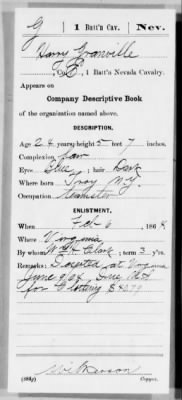 G 1 Batt'n Cav. Nev.
Harry Granville
, Co. E, 1 Batt'n Nevada Cavalry.
Appears on
Company Descriptive Book
of the organization named above.
DESCRIPTION.
Age 24 years; height 5 feet 7 inches.
Complexion Fair
Eyes Blue; hair Dark
Where born Troy N.Y.
Occupation Teamster
ENLISTMENT.
When Feb 6, 1864
Where Virginia
By whom Clark; term 3 y'rs.
Remarks: Deserted at Virginia
June 9/64. Due U.S.
for Clothing $
Copyist.